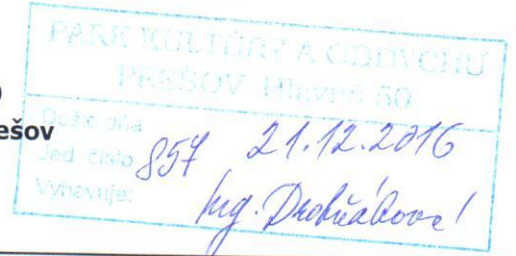 PARK KULTÚRY A ODDYCHU
PREŠOV Hlavná 50
)
ešov
Došlo dňa 21.12.2016
Jed. číslo 857
Vybavuje: Ing.